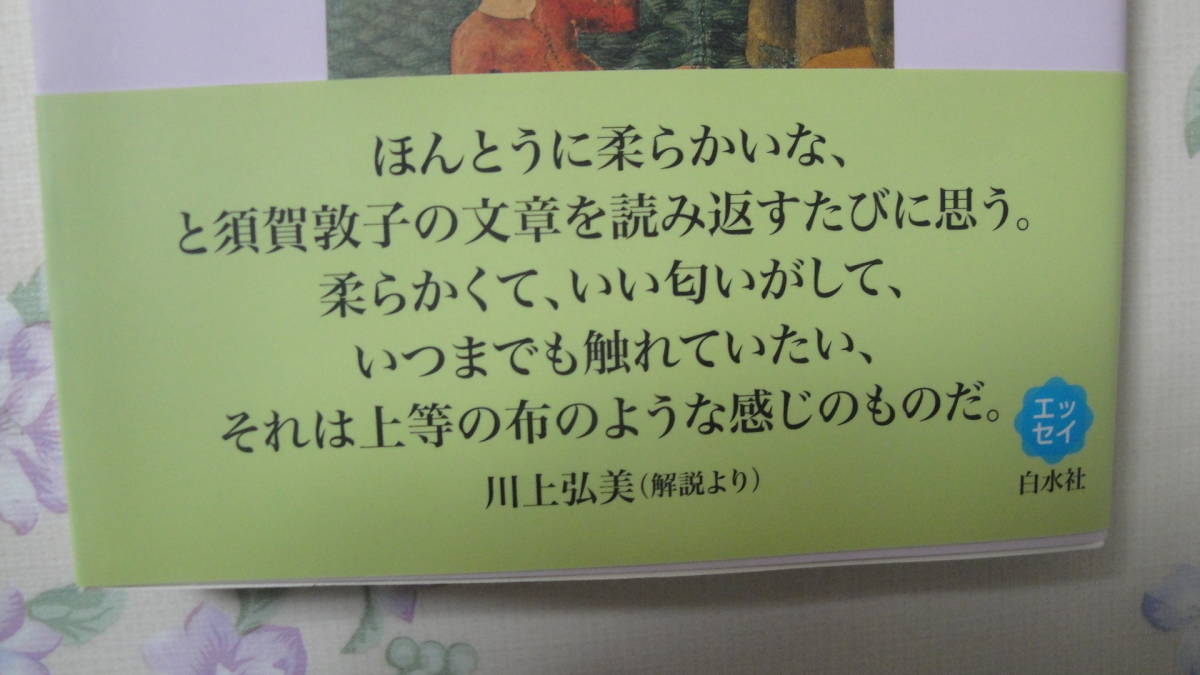 ほんとうに柔らかいな、
と須賀敦子の文章を読み返すたびに思う。
柔らかくて、いい匂いがして、
いつまでも触れていたい、
それは上等の布のような感じのものだ。
川上弘美（解説より）
エッ
セイ
白水社